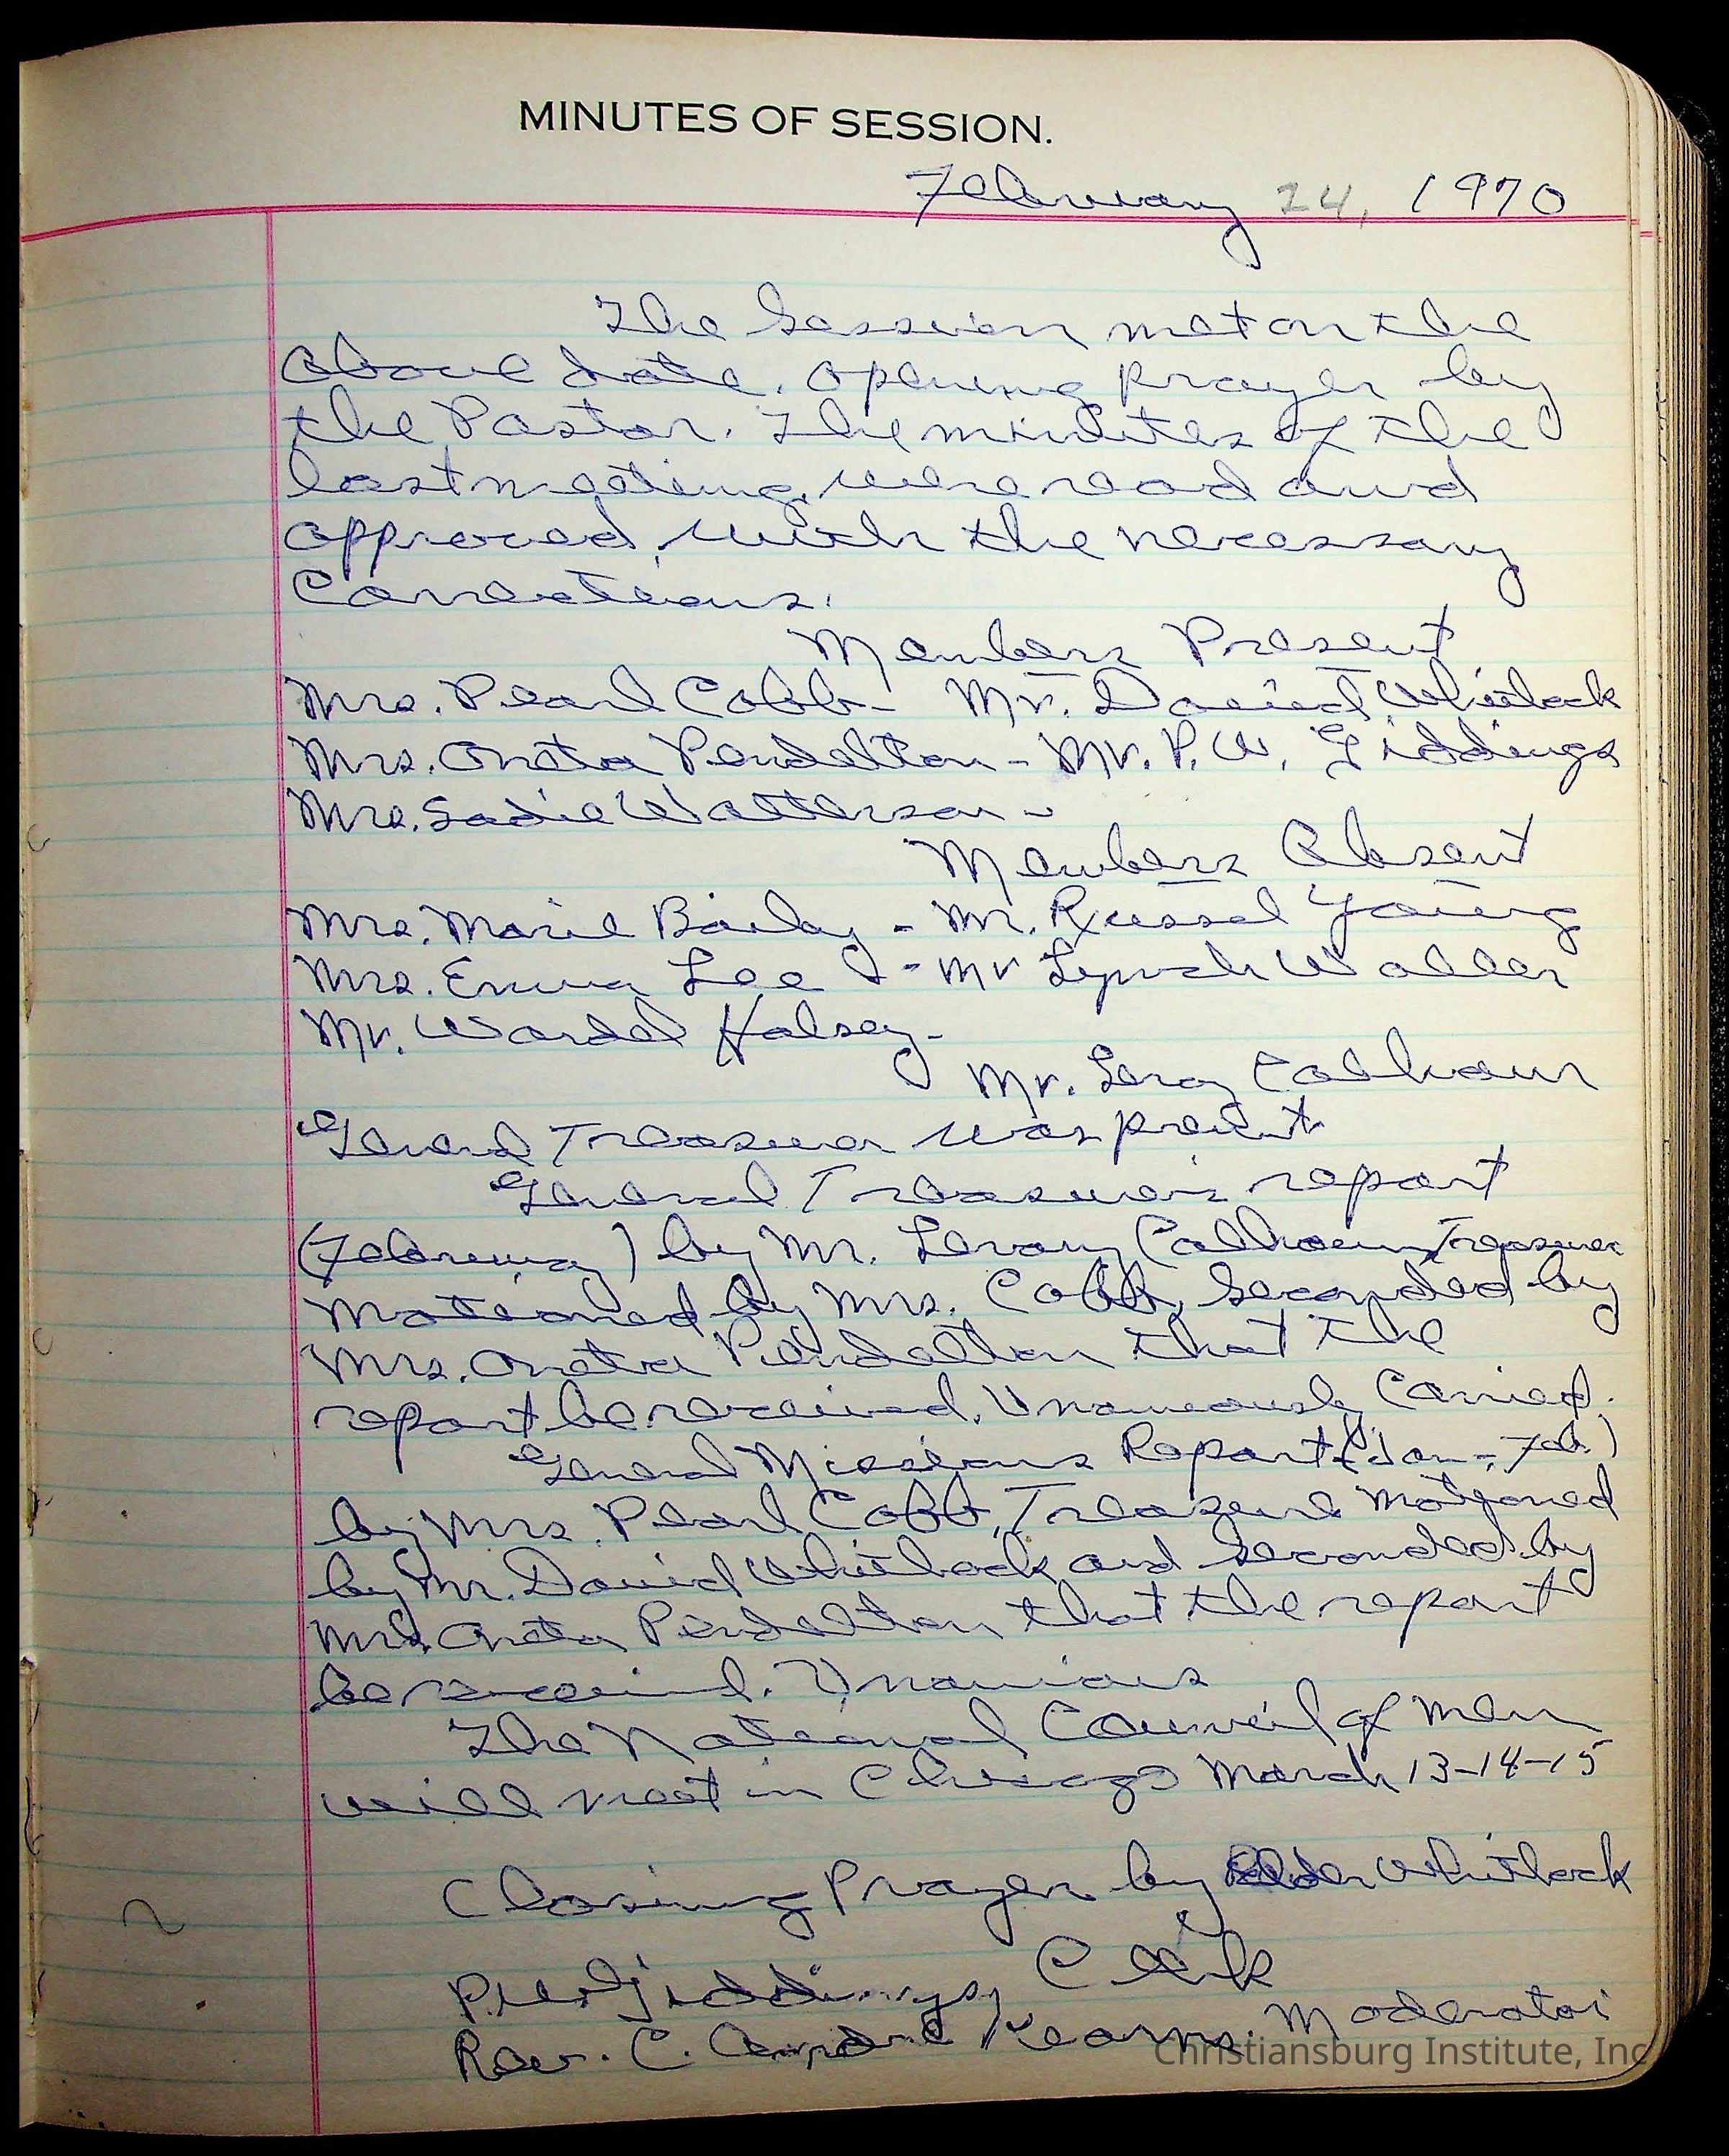 MINUTES OF SESSION.
February 24, 1970
The Session met on the
above date. Opening prayer by
the Pastor. The minutes of the
last meeting, were read and
approved, with the necessary
Corrections.
Members Present
Mrs. Pearl Cobb - Mr. David Whitlock
Mrs. Oneta Pendelton - Mr. P. W. Giddings
Mrs. Sadie Watterson -
Members Absent
Mrs. Marie Baily - Mr. Russel Young
Mrs. Emma Lee - Mr Lynch Waller
Mr. Wardel Halsey -
Mr. Leroy Calhoun
General Treasurer was present
General Treasurer's report
(February) by Mr. Leroy Calhoun, Treasurer
Motioned by Mrs. Cobb, Seconded by
Mrs. Oneta Pendelton that the
report be received. Unanimously Carried.
General Missions Report (Jan - Feb.)
by Mrs. Pearl Cobb, Treasure Motioned
by Mr. David Whitlock and Seconded by
Mrs. Oneta Pendelton that the report
be received.
The National Council of Men
will meet in Chicago March 13-14-15
Closing Prayer by Elder Whitlock
P.W. Giddings, Clerk
Rev. C. André Kearns. Moderator
Christiansburg Institute, Inc